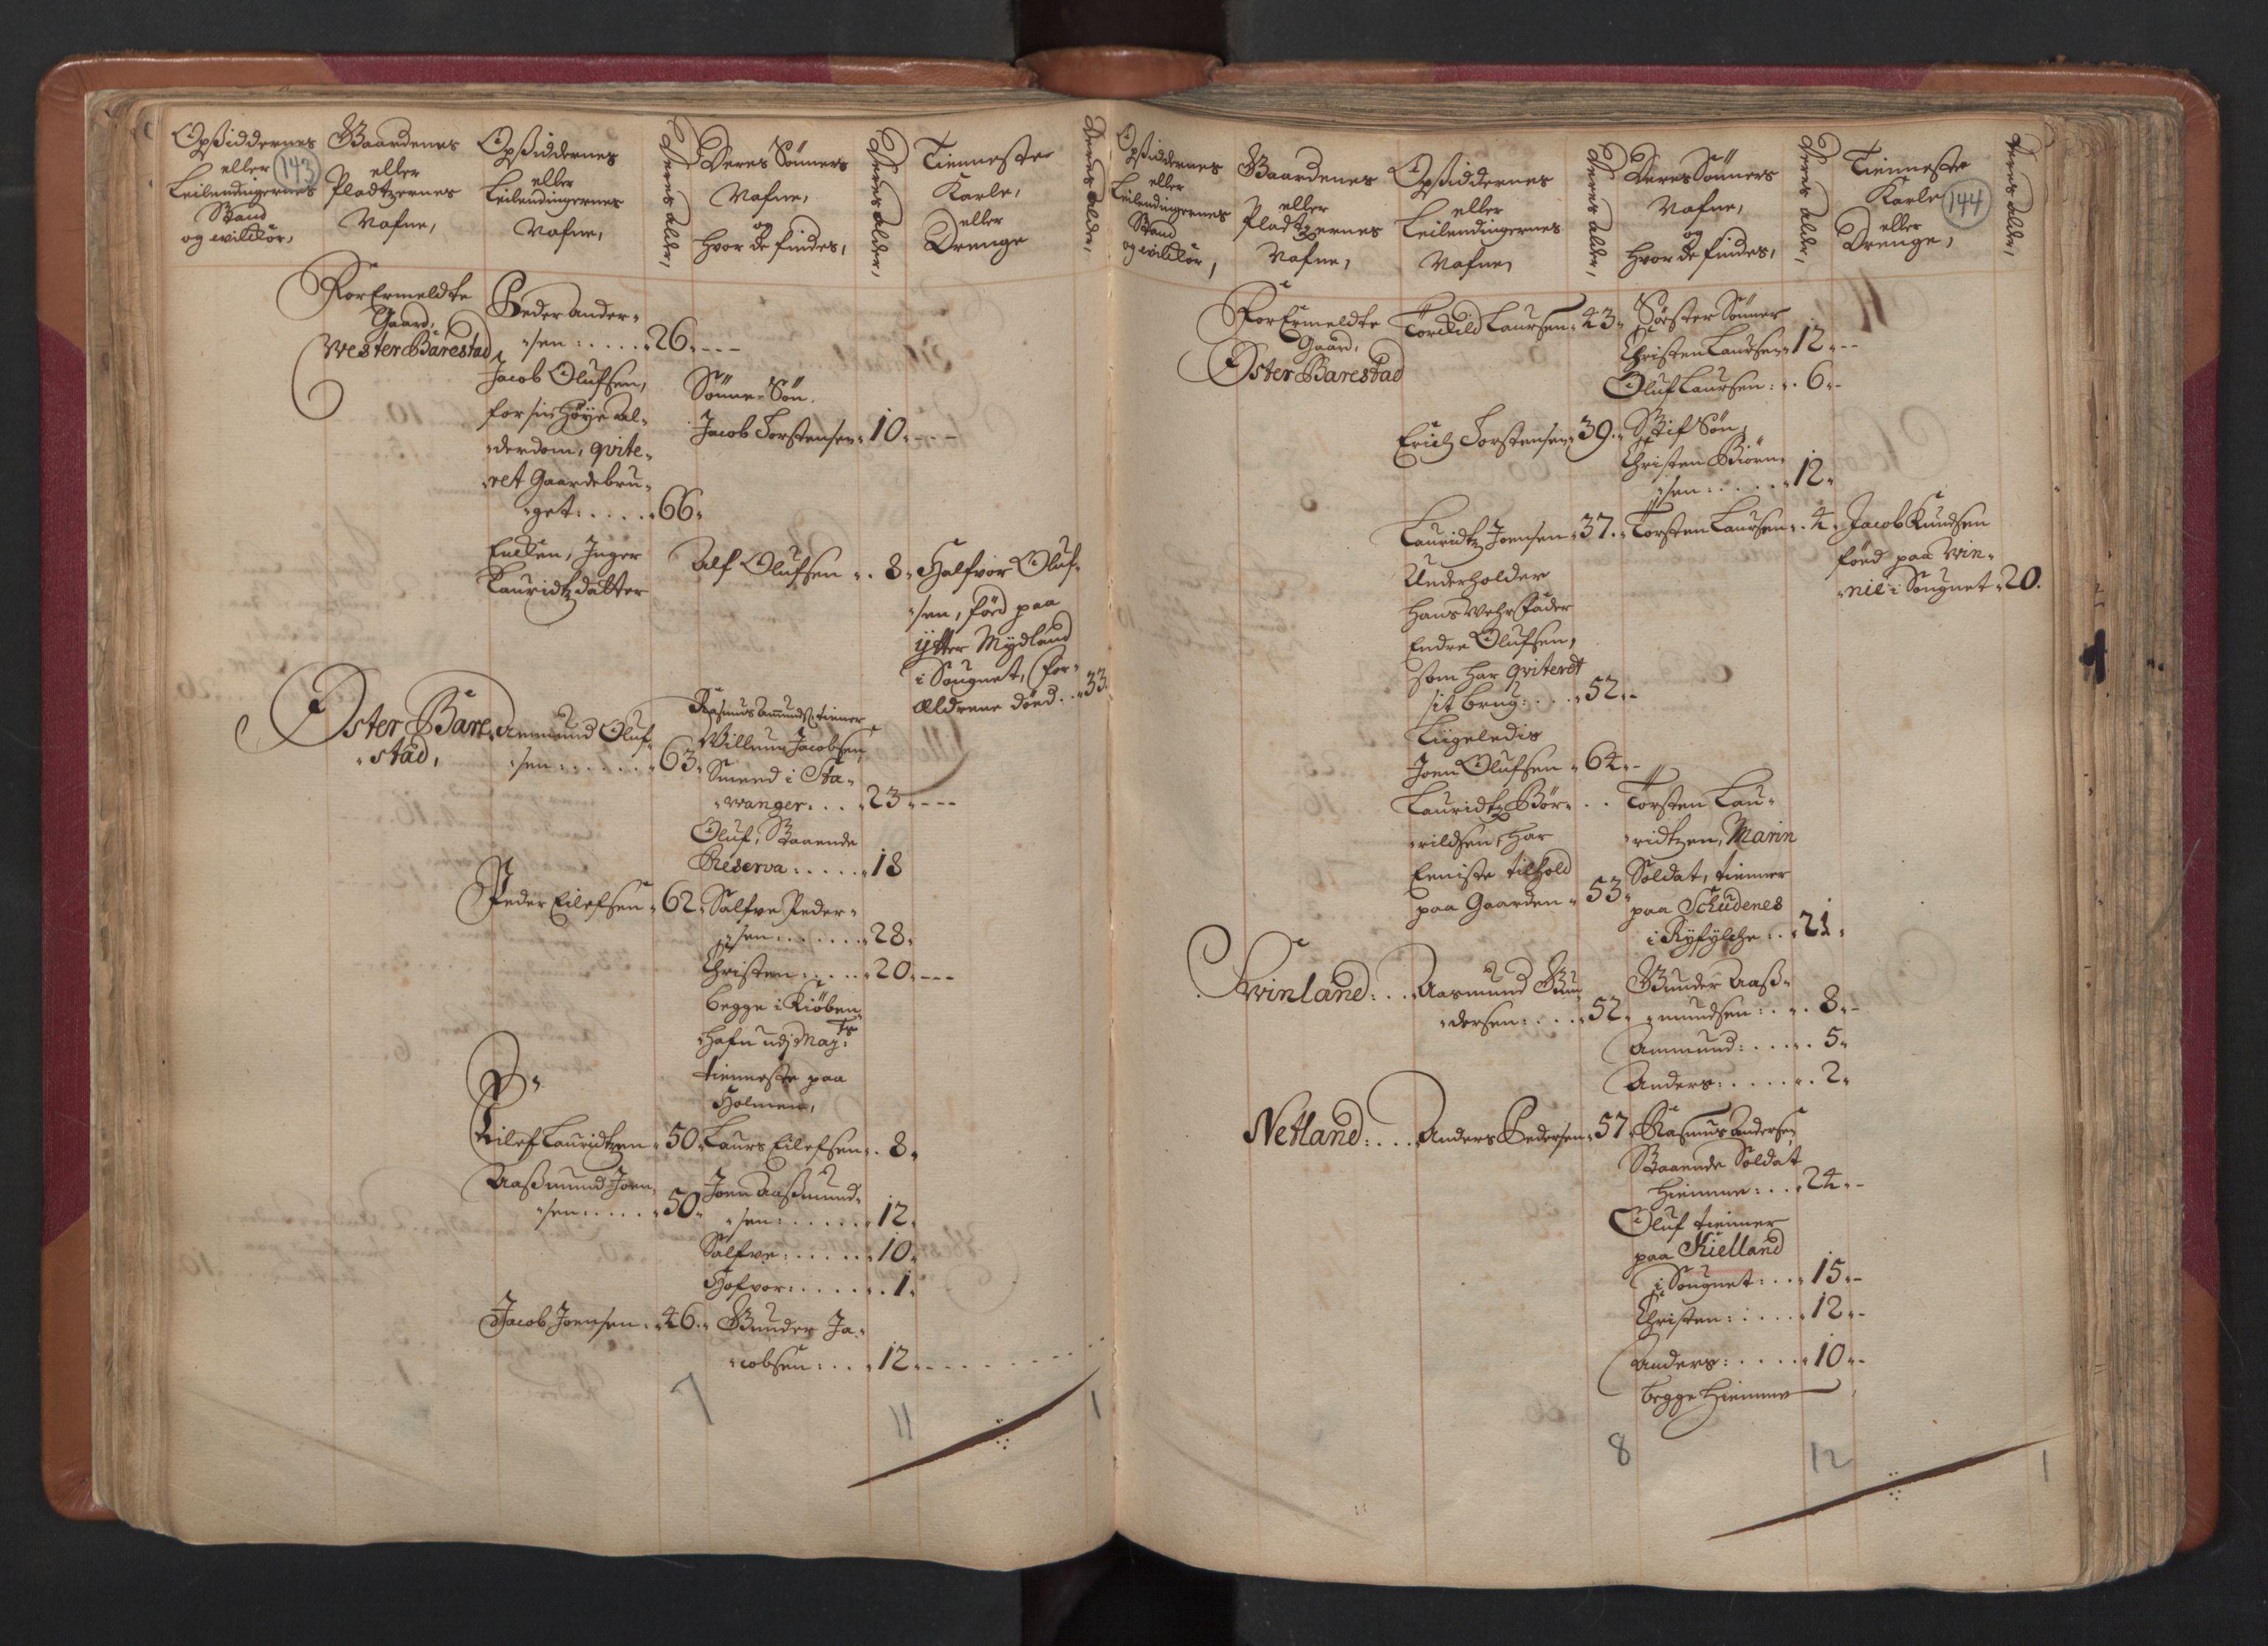 Opßiddernes
eller
Leilendingernes
Stand
og wilckor,
143
Gaardenes
eller
Pladtzernes
Nafne,
Opßiddernes
eller
Leilendingernes
Nafne,
Deres alder,
Deres Sönners
Nafne,
og
hvor de findes,
Deres alder,
Tienneste
Karle,
eller
Drenge
Deres alder,
ForErmeldte
Gaard,
Wester Barestad
Peder Ander„
„sen : . . . . „ 26„ - - -
Jacob Olufsen,
for sin höye al„
„derdom, qvite„
„ret Gaardebru„
„get: . . . . „ 66„
Sönne-Sön.
Jacob Torstensen„ 10„ - - -
Encken, Inger
Lauridtzdatter
Alf Olufsen „ . 8„
Halfvor Oluf„
„sen, föd paa
ÿtter Mydland
i Sougnet, For„
Ældrene död . . „ 33
Öster Bare„
„stad,
Ammund Oluf„
„sen : . . . . . „ 63„
Rasmus Amunds: tienner
Willum Jacobsen
Smeed i Sta„
„wanger . . . „ 23„ - - -
Oluf, Staaende
Reserva : . . . . „ 18
Peder Eilefsen „ 62„
Salfve Peder„
„sen . . . . . . „ 28„
Christen : . . . „ 20„ - - -
begge i Kiöben„
hafn udj Maj:ts
tienneste paa
Holmen,
Eilef Lauridtzen „ 50„
Laurs Eilefsen„ . 8„
Aaßmund Joen„
„sen : . . . . „ 50„
Joen Aaßmund„
„sen : . . . . . „ 12„
Salfve : . . . . . „ 10„
Hofvor : . . . . „ . 1„
Jacob Joensen . „ 46„
Gunder Ja„
„cobsen : . . . „ 12„ - - - -
7
11
1
Opßiddernes
eller
Leilendingernes
Stand
og wilckor,
Gaardenes
eller
Pladtzernes
Nafne,
Opßiddernes
eller
Leilendingernes
Nafne,
Deres alder,
Deres Sönners
Nafne,
og
hvor de findes,
Deres alder,
Tienneste
Karle
eller
Drenge,
144
Deres alder,
ForErmeldte
Gaard,
Öster Barestad
Torckild Laursen„ 43„
Söster Sönner
Christen Laursen„ 12„ - -
Oluf Laursen : „ . 6„ -
Erich Torstensen„ 39„
Stif Sön,
Christen Biörn„
„sen : . . . . . „ 12„
Lauridtz Joensen„ 37„
Torsten Laursen„ . 4„
Jacob Knudsen
föed paa Win„
„nie i Sougnet „ 20.
Underholder
hans Wehrfader
Endre Olufsen,
som har qviteret
sit brug: . . . „ 52„ -
Liigeledis
Joen Olufsen „ 64„ -
Lauridtz Bör„ . .
„rildsen, har
Eeniste tilhold
paa Gaarden „ 53„
Torsten Lau„
„ridtzen, Marin
Soldat, tienner
paa Schudenes
i Ryfylche . . „ 21„
Swinland : . .
Aasmund Gun„
„dersen : . . . „ 52„
Gunder Aaß„
„mundsen : . „ . 8„ -
Ammund : . . . „ . 5„
Anders : . . . . „ . 2„
Netland : . . .
Anders Pedersen„ 57„
Rasmus Andersen
Staaende Soldat
hiemme : . . „ 24„ -
Oluf tienner
paa Kielland
i Sougnet : . . „ 15„ -
Christen : . . . . „ 12„ -
Anders : . . . . „ 10„ -
begge hiemme
8
12
1